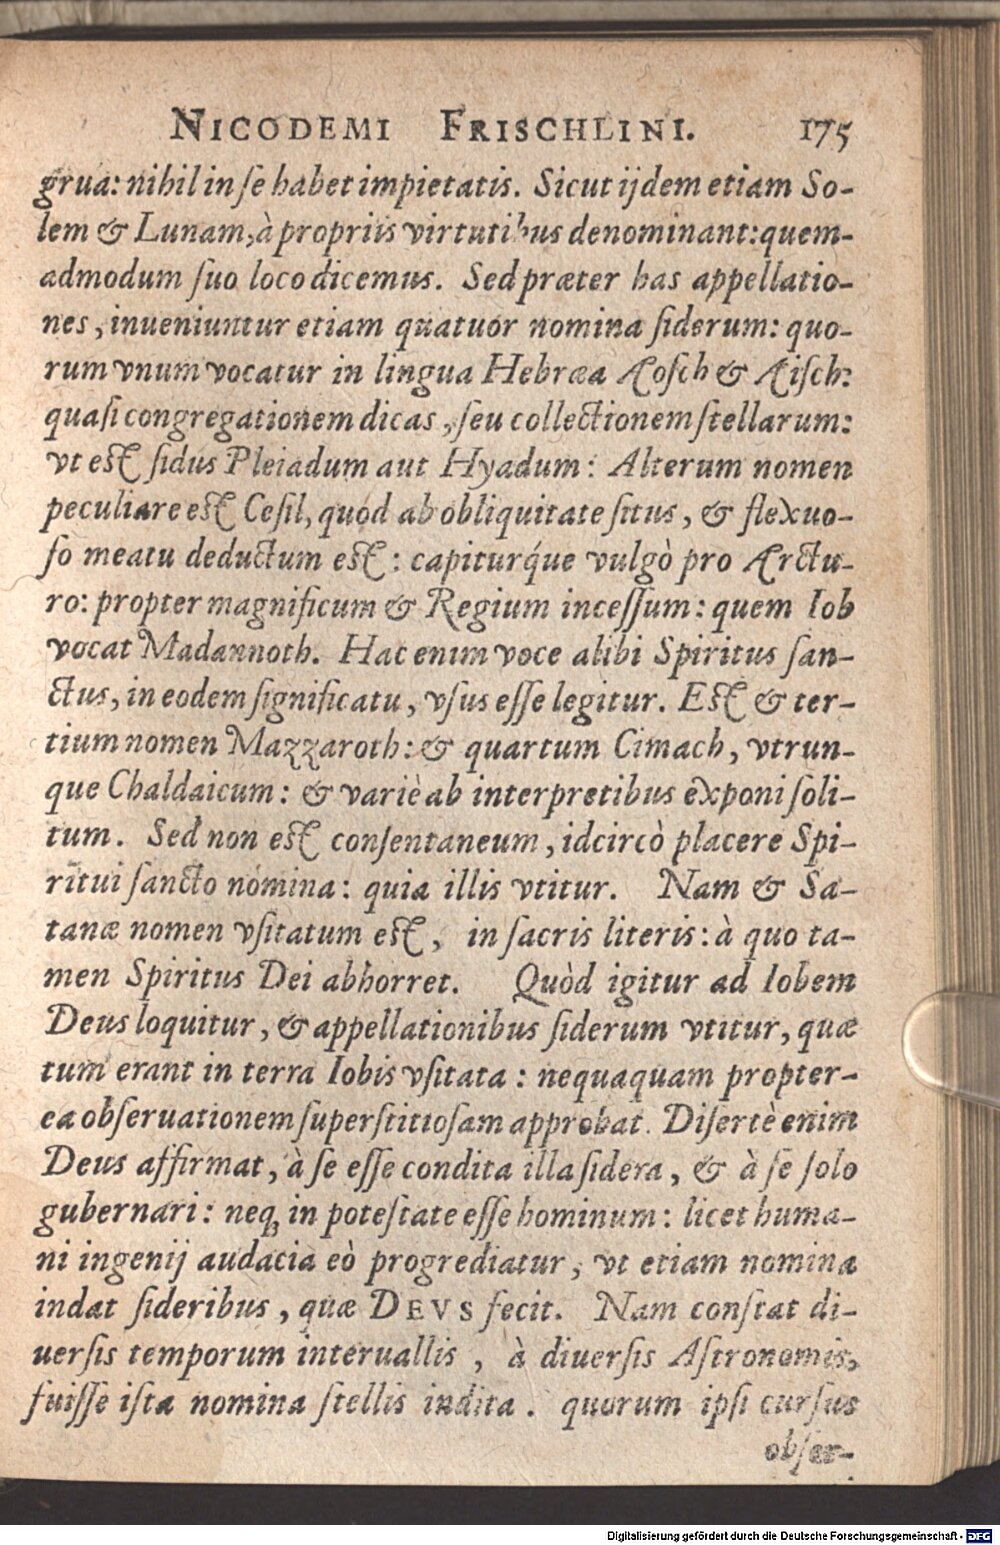 NICODEMI FRISCHLINI. 175
grua: nihil in ſe habet impietatis. Sicut ijdem etiam So-
lem & Lunam, à propriis virtutibus denominant: quem-
admodum ſuo loco dicemus. Sed præter has appellatio-
nes, inueniuntur etiam quatuor nomina ſiderum: quo-
rum vnum vocatur in lingua Hebræa Aoſch & Aiſch:
quaſi congregationem dicas, ſeu collectionem ſtellarum:
vt eſt ſidus Pleiadum aut Hyadum: Alterum nomen
peculiare eſt Ceſil, quòd ab obliquitate ſitus, & flexuo-
ſo meatu deductum eſt: capiturq́ue vulgò pro Arctu-
ro: propter magnificum & Regium inceſſum: quem Iob
vocat Madannoth. Hac enim voce alibi Spiritus ſan-
ctus, in eodem ſignificatu, vſus eſſe legitur. Eſt & ter-
tium nomen Mazzaroth: & quartum Cimach, vtrun-
que Chaldaicum: & variè ab interpretibus exponi ſoli-
tum. Sed non eſt conſentaneum, idcircò placere Spi-
ritui ſancto nomina: quia illis vtitur. Nam & Sa-
tanæ nomen vſitatum eſt, in ſacris literis: à quo ta-
men Spiritus Dei abhorret. Quòd igitur ad Iobem
Deus loquitur, & appellationibus ſiderum vtitur, quæ
tum erant in terra Iobis vſitata: nequaquam propter-
ea obſeruationem ſuperſtitioſam approbat. Diſertè enim
Deus affirmat, à ſe eſſe condita illa ſidera, & à ſe ſolo
gubernari: neq; in poteſtate eſſe hominum: licet huma-
ni ingenij audacia eò progrediatur, vt etiam nomina
indat ſideribus, quæ DEVS fecit. Nam conſtat di-
uerſis temporum interuallis, à diuerſis Aſtronomis,
fuiſſe iſta nomina ſtellis indita. quorum ipſi curſus
obſer-
Digitalisierung gefördert durch die Deutsche Forschungsgemeinschaft - DFG